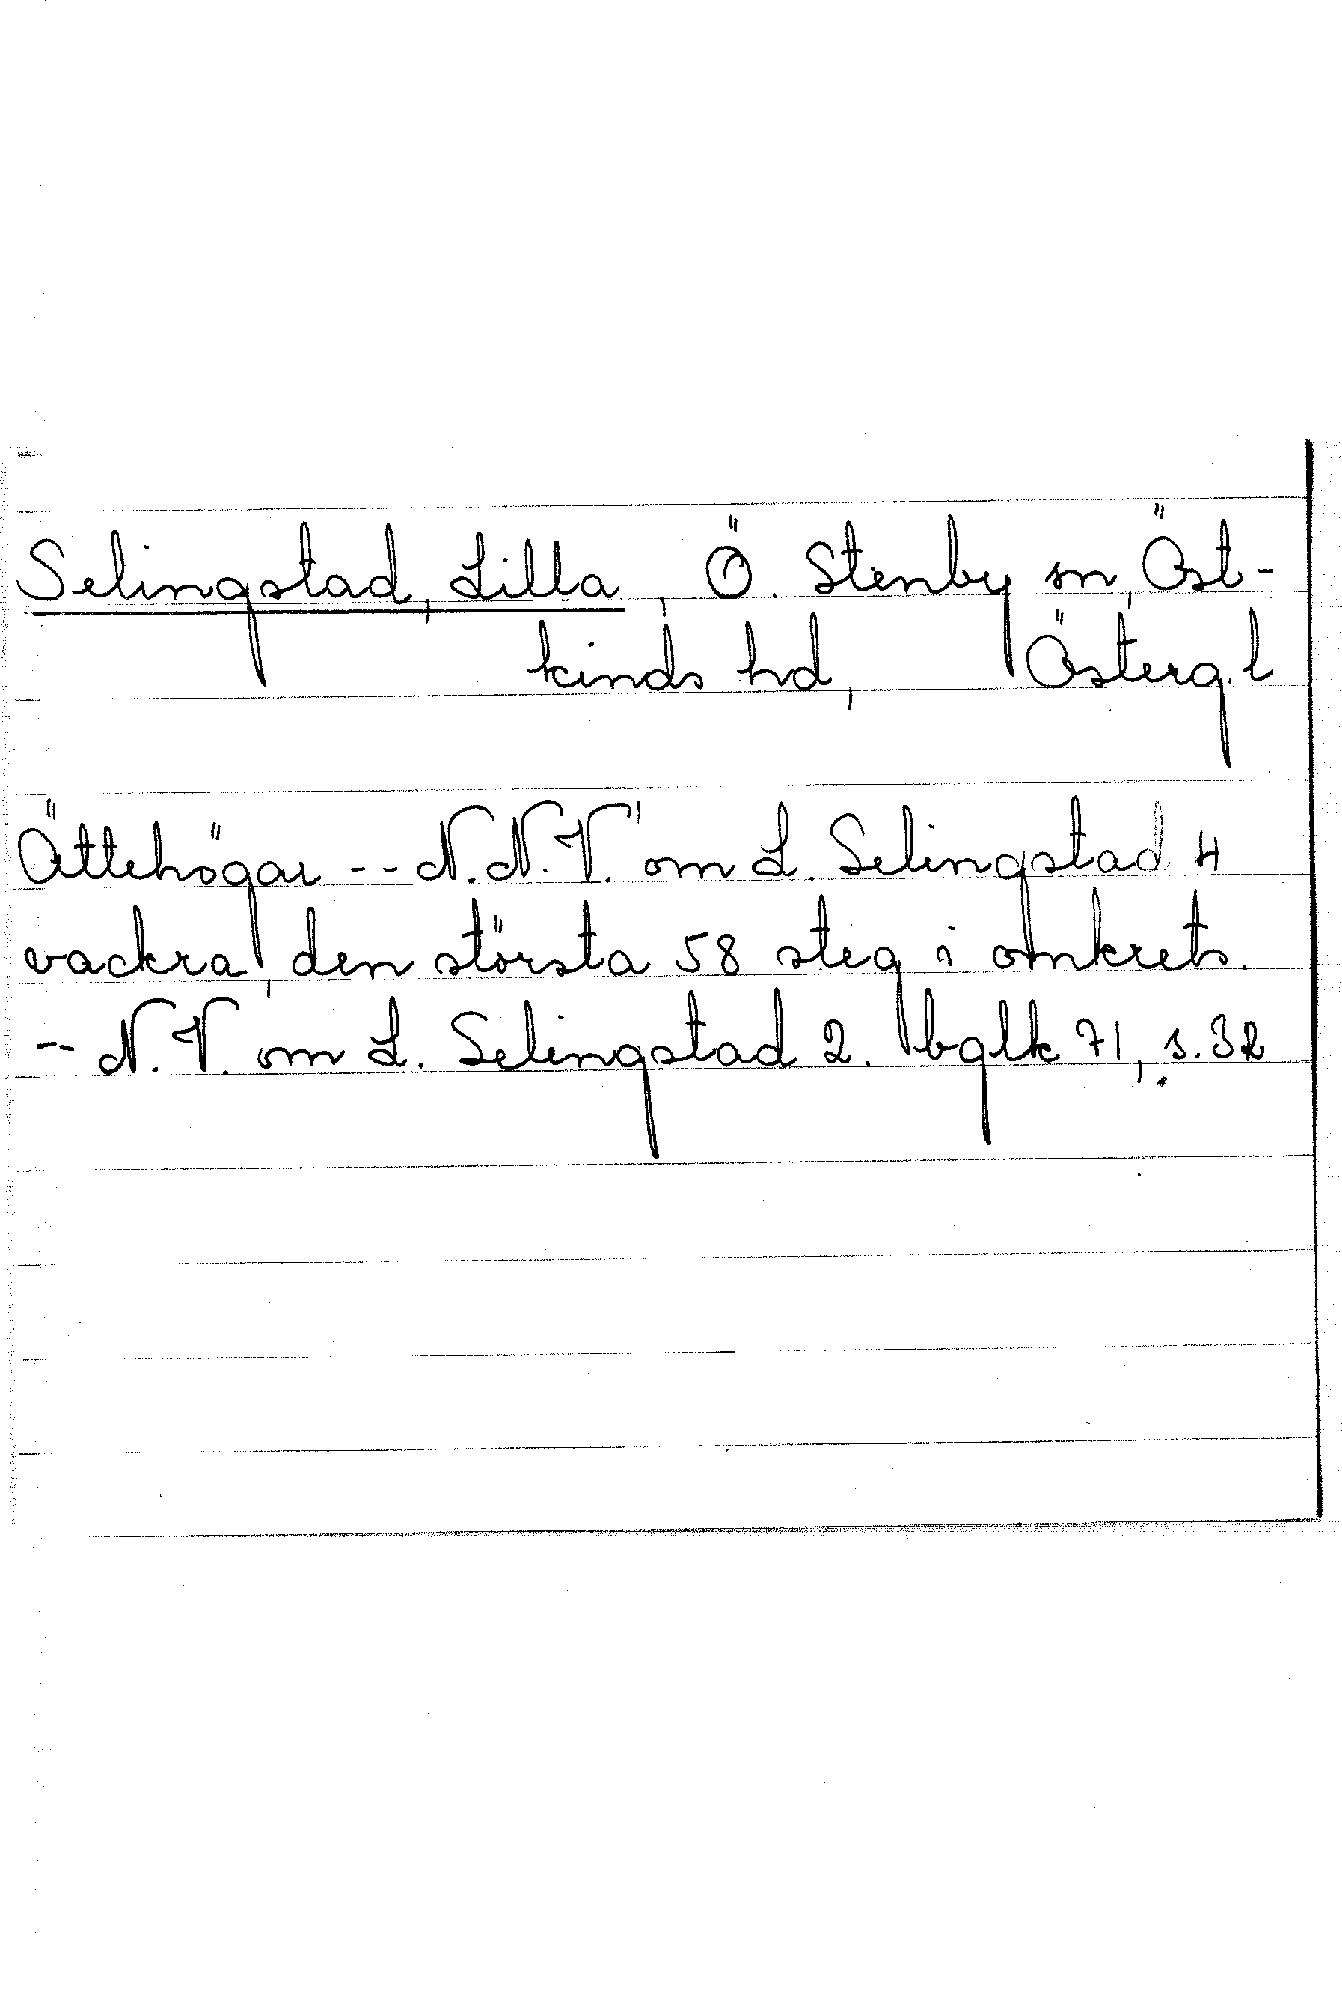 Selingstad, Lilla, Ö. Stenby sn, Öst-
kinds hd, Österg. l
Ättehögar -- N.N.V. om L. Selingstad 4
vackra, den största 58 steg i omkrets.
-- N.V. om L. Selingstad 2. bglk 71, s. 32